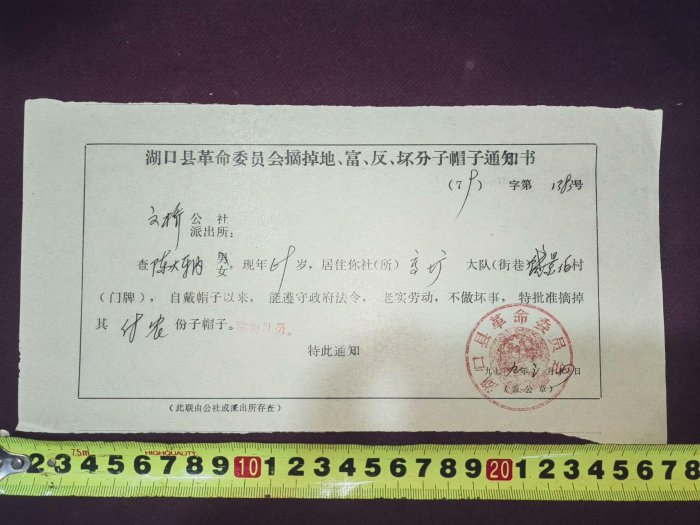 湖口县革命委员会摘掉地、富、反、坏分子帽子通知书
(79) 字第 1393号
文桥 公社
派出所：
查 陈大 男
女 ，现年 69 岁，居住你社(所) 大队(街巷) 村
(门牌)，自戴帽子以来，能遵守政府法令，老实劳动，不做坏事，特批准摘掉
其 付农 份子帽子。改为社员。
特此通知
湖口县革命委员会
一九七九年 月 日
(盖公章)
(此联由公社或派出所存查)
7.5m HIGHQUALITY
2 3 4 5 6 7 8 9 10 1 2 3 4 5 6 7 8 9 20 1 2 3 4 5 6 7 8